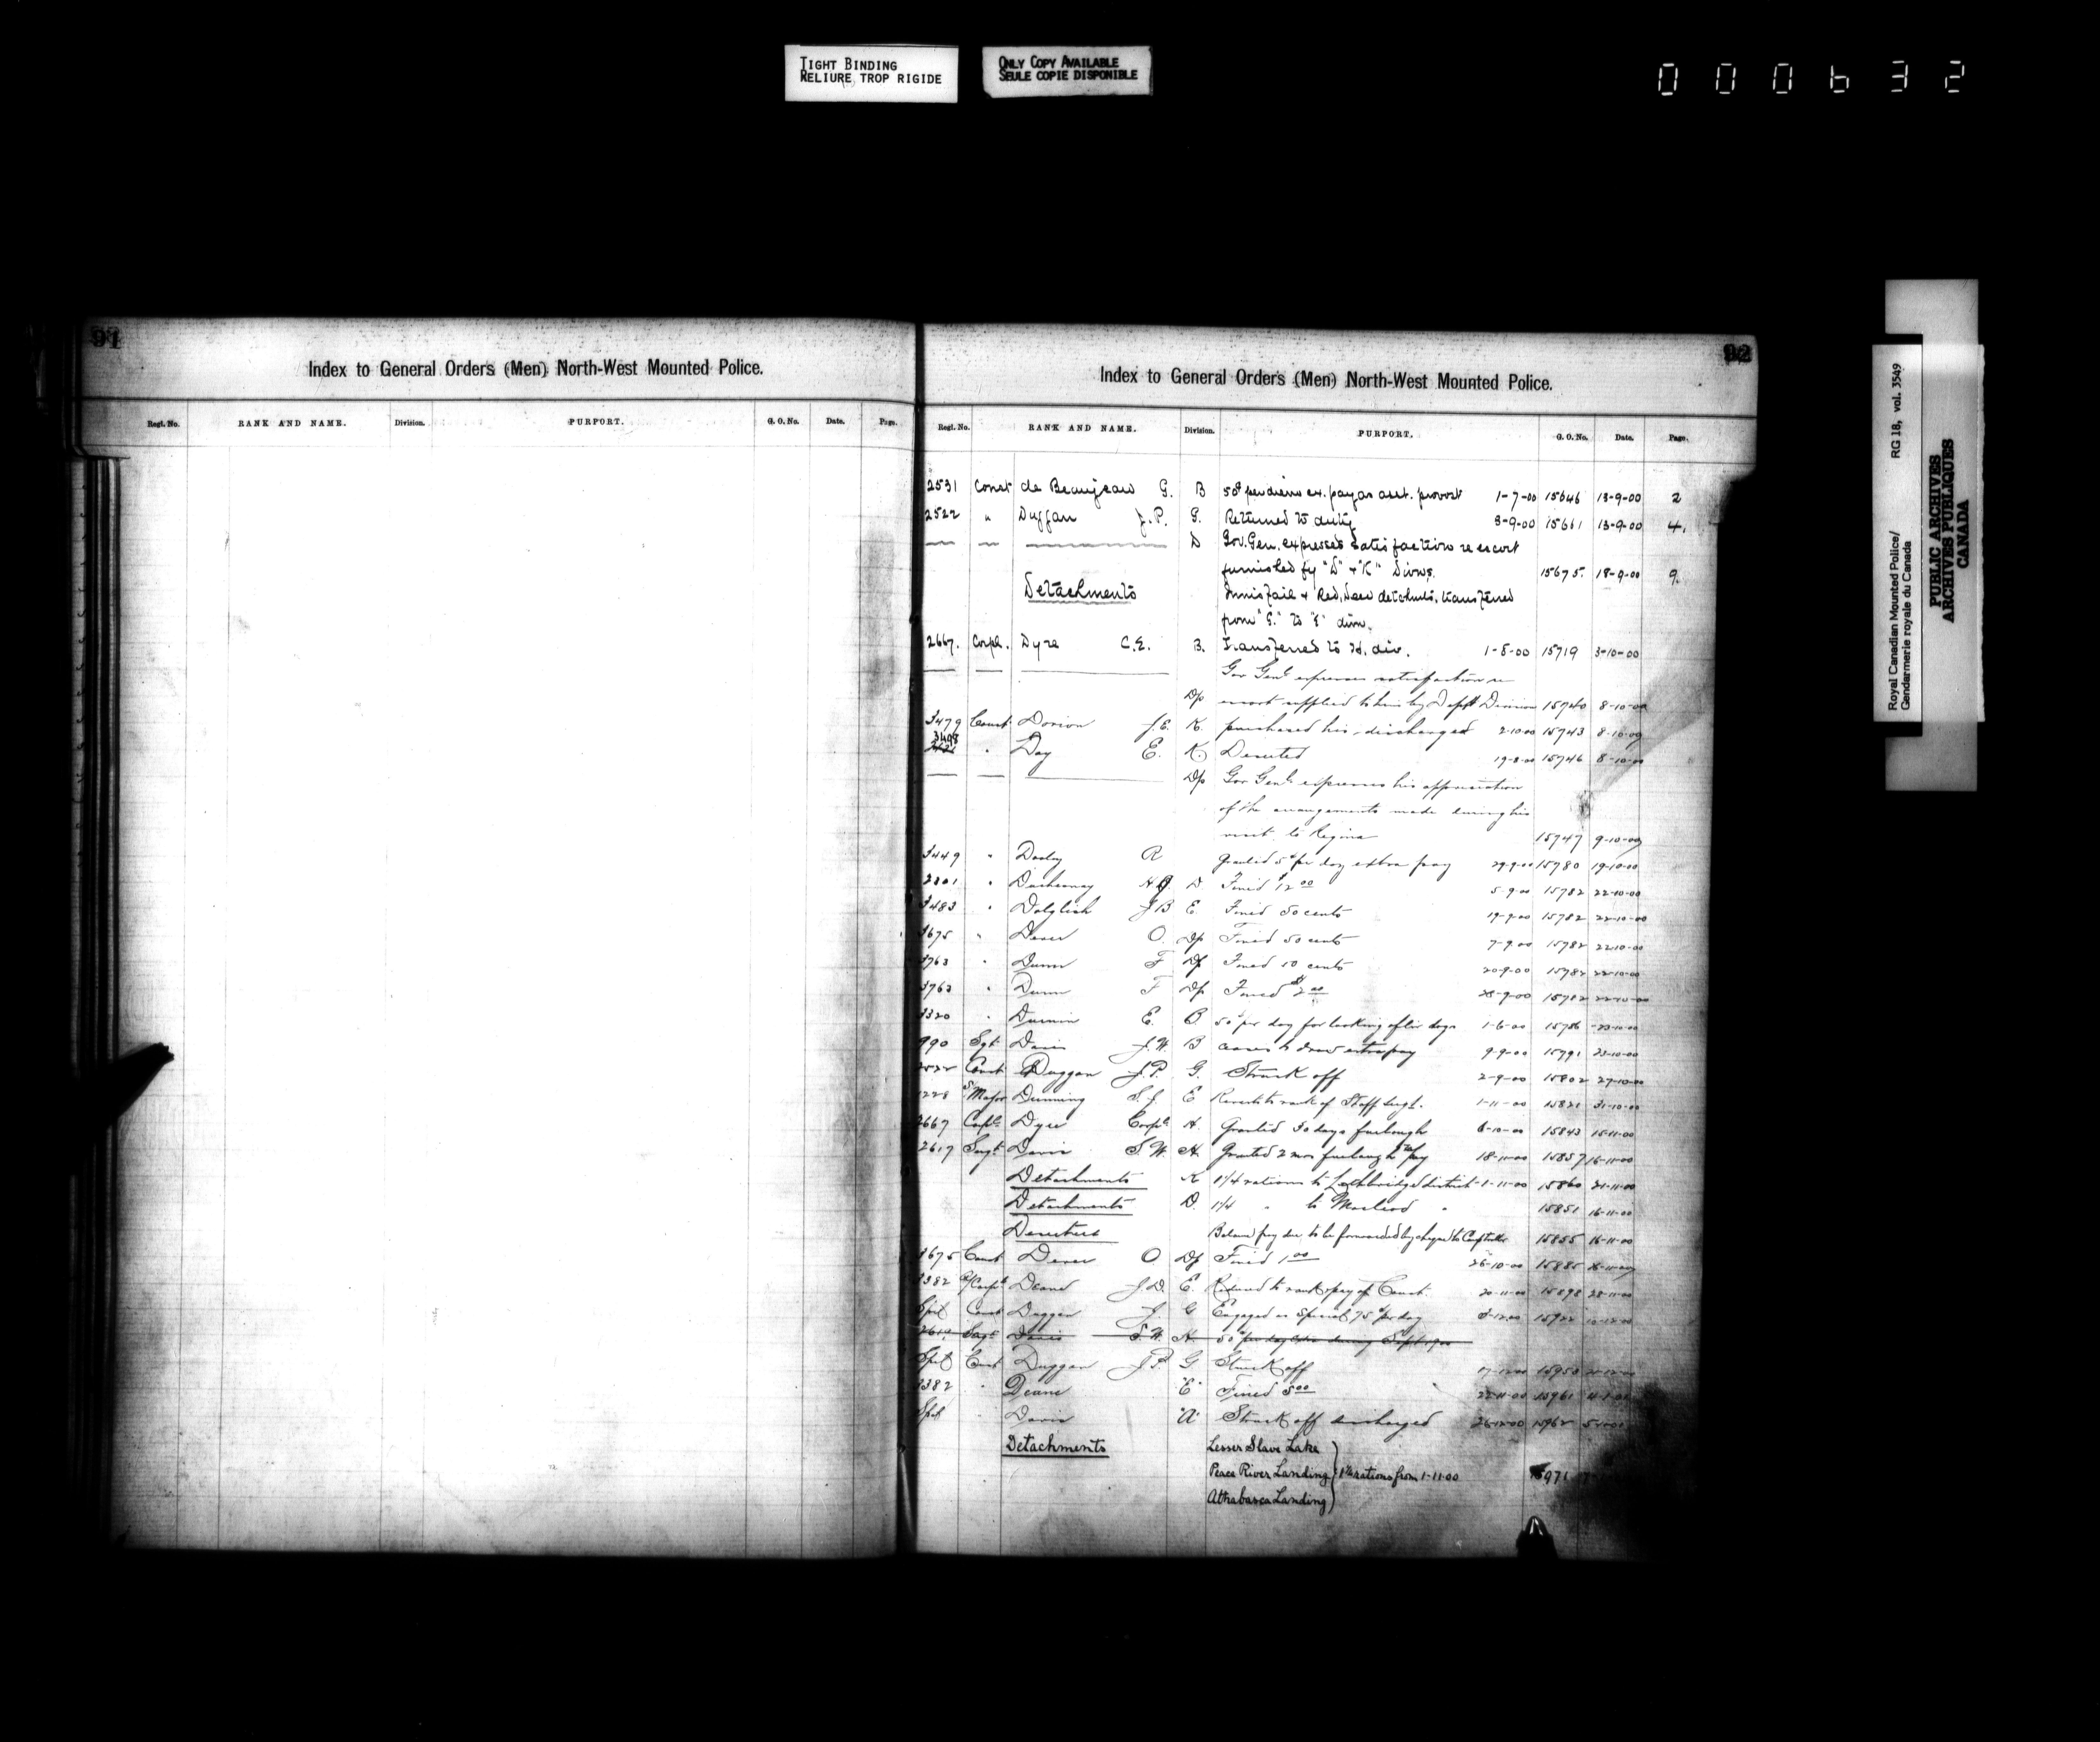 TIGHT BINDING
RELIURE TROP RIGIDE
ONLY COPY AVAILABLE
SEULE COPIE DISPONIBLE
000632
91
Index to General Orders (Men) North-West Mounted Police.
Regt. No. RANK AND NAME. Division. PURPORT. G. O. No. Date. Page.
92
Index to General Orders (Men) North-West Mounted Police.
Regt. No. RANK AND NAME. Division. PURPORT. G. O. No. Date. Page.
2531 Const de Beaujeau G. B 50¢ per diem ex. pay as asst. provost 1-7-00 15646 13-9-00 2
2522 " Duggan J.P. G. Returned to duty 3-9-00 15661 13-9-00 4.
D Gov. Gen. expresses satisfaction re escort
furnished by "D" & "K" Divns. 15675. 18-9-00 9.
Detachments Innisfail & Red Deer detchmts. transferred
from "G." to "E" divn.
2667. Corpl. Dyre C.E. B. Transferred to H. div. 1-8-00 15719 3-10-00
Gov Genl expresses satisfaction re
Dp escort supplied to him by Depot Division 15740 8-10-00
3479 Const. Dorion J.E. K. purchased his discharged 2-10-00 15743 8-10-00
3498 " Day E. K. Deserted 19-8-00 15746 8-10-00
Dp Gov Genl expresses his appreciation
of the arrangements made during his
visit to Regina 15747 9-10-00
3449 " Dooley R Granted 5¢ per day extra pay 29-9-00 15780 19-10-00
2801 " Duchesnay D Fined $12 00 5-9-00 15782 22-10-00
3483 " Dalglish J B E Fined 50 cents 19-9-00 15782 22-10-00
3675 " Dever O. Dp Fined 50 cents 7-9-00 15782 22-10-00
3763 " Dunn F Dp Fined 50 cents 20-9-00 15782 22-10-00
3763 " Dunn F Dp Fined $2 00 15782 22-10-00
3320 " E. B. 50¢ per day for looking after dogs 1-6-00 15786 23-10-00
990 Sgt. Davis J.W. B ceases to draw extra pay 9-9-00 15791 23-10-00
2522 Const Duggan J.P. G. Struck off 2-9-00 15802 27-10-00
1228 S. Major Dunning S.J. E Reverts to rank of Staff Sergt. 1-11-00 15821 31-10-00
2667 Corpl. Dyre Corpl. H. Granted 30 days furlough 15843 15-11-00
2617 Sergt. Davis S.W. H. Granted 2 mos furlough pay 18-11-00 15857 16-11-00
Detachments K 1¼ rations to Lethbridge district 1-11-00 15860 21-11-00
Detachments D. 1¼ " to Macleod " 15851 16-11-00
Deserters Balance pay due to be forwarded by cheque to Comptroller 15855 16-11-00
3675 Const Dever O. Dp Fined 1 00 26-10-00 15885
3382 a/Corpl. Deane J.D. E. Reduced to rank & pay of Const. 20-11-00 15898 28-11-00
Spl Const Duggan J. G Engaged as Special 75¢ per day 15922
Sergt Davis S.W. H. 50¢ per day extra during Sept 1900
Spl Const Duggan J.P. G Struck off 15953
3382 " Deane "E" Fined 5 00 22-11-00 15961
Spl " Davis "A" Struck off discharged 26-12-00 15962
Detachments Lesser Slave Lake
Peace River Landing 1½ rations from 1-11-00 15971
Athabasca Landing
Royal Canadian Mounted Police/ RG 18, vol. 3549
Gendarmerie royale du Canada
PUBLIC ARCHIVES
ARCHIVES PUBLIQUES
CANADA